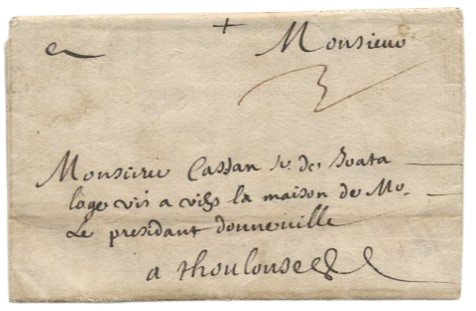 Monsieur
3
Monsieur Cassan Sr. de
loge vis a vis la maison de Mo.
Le presidant donneville
a thoulouse